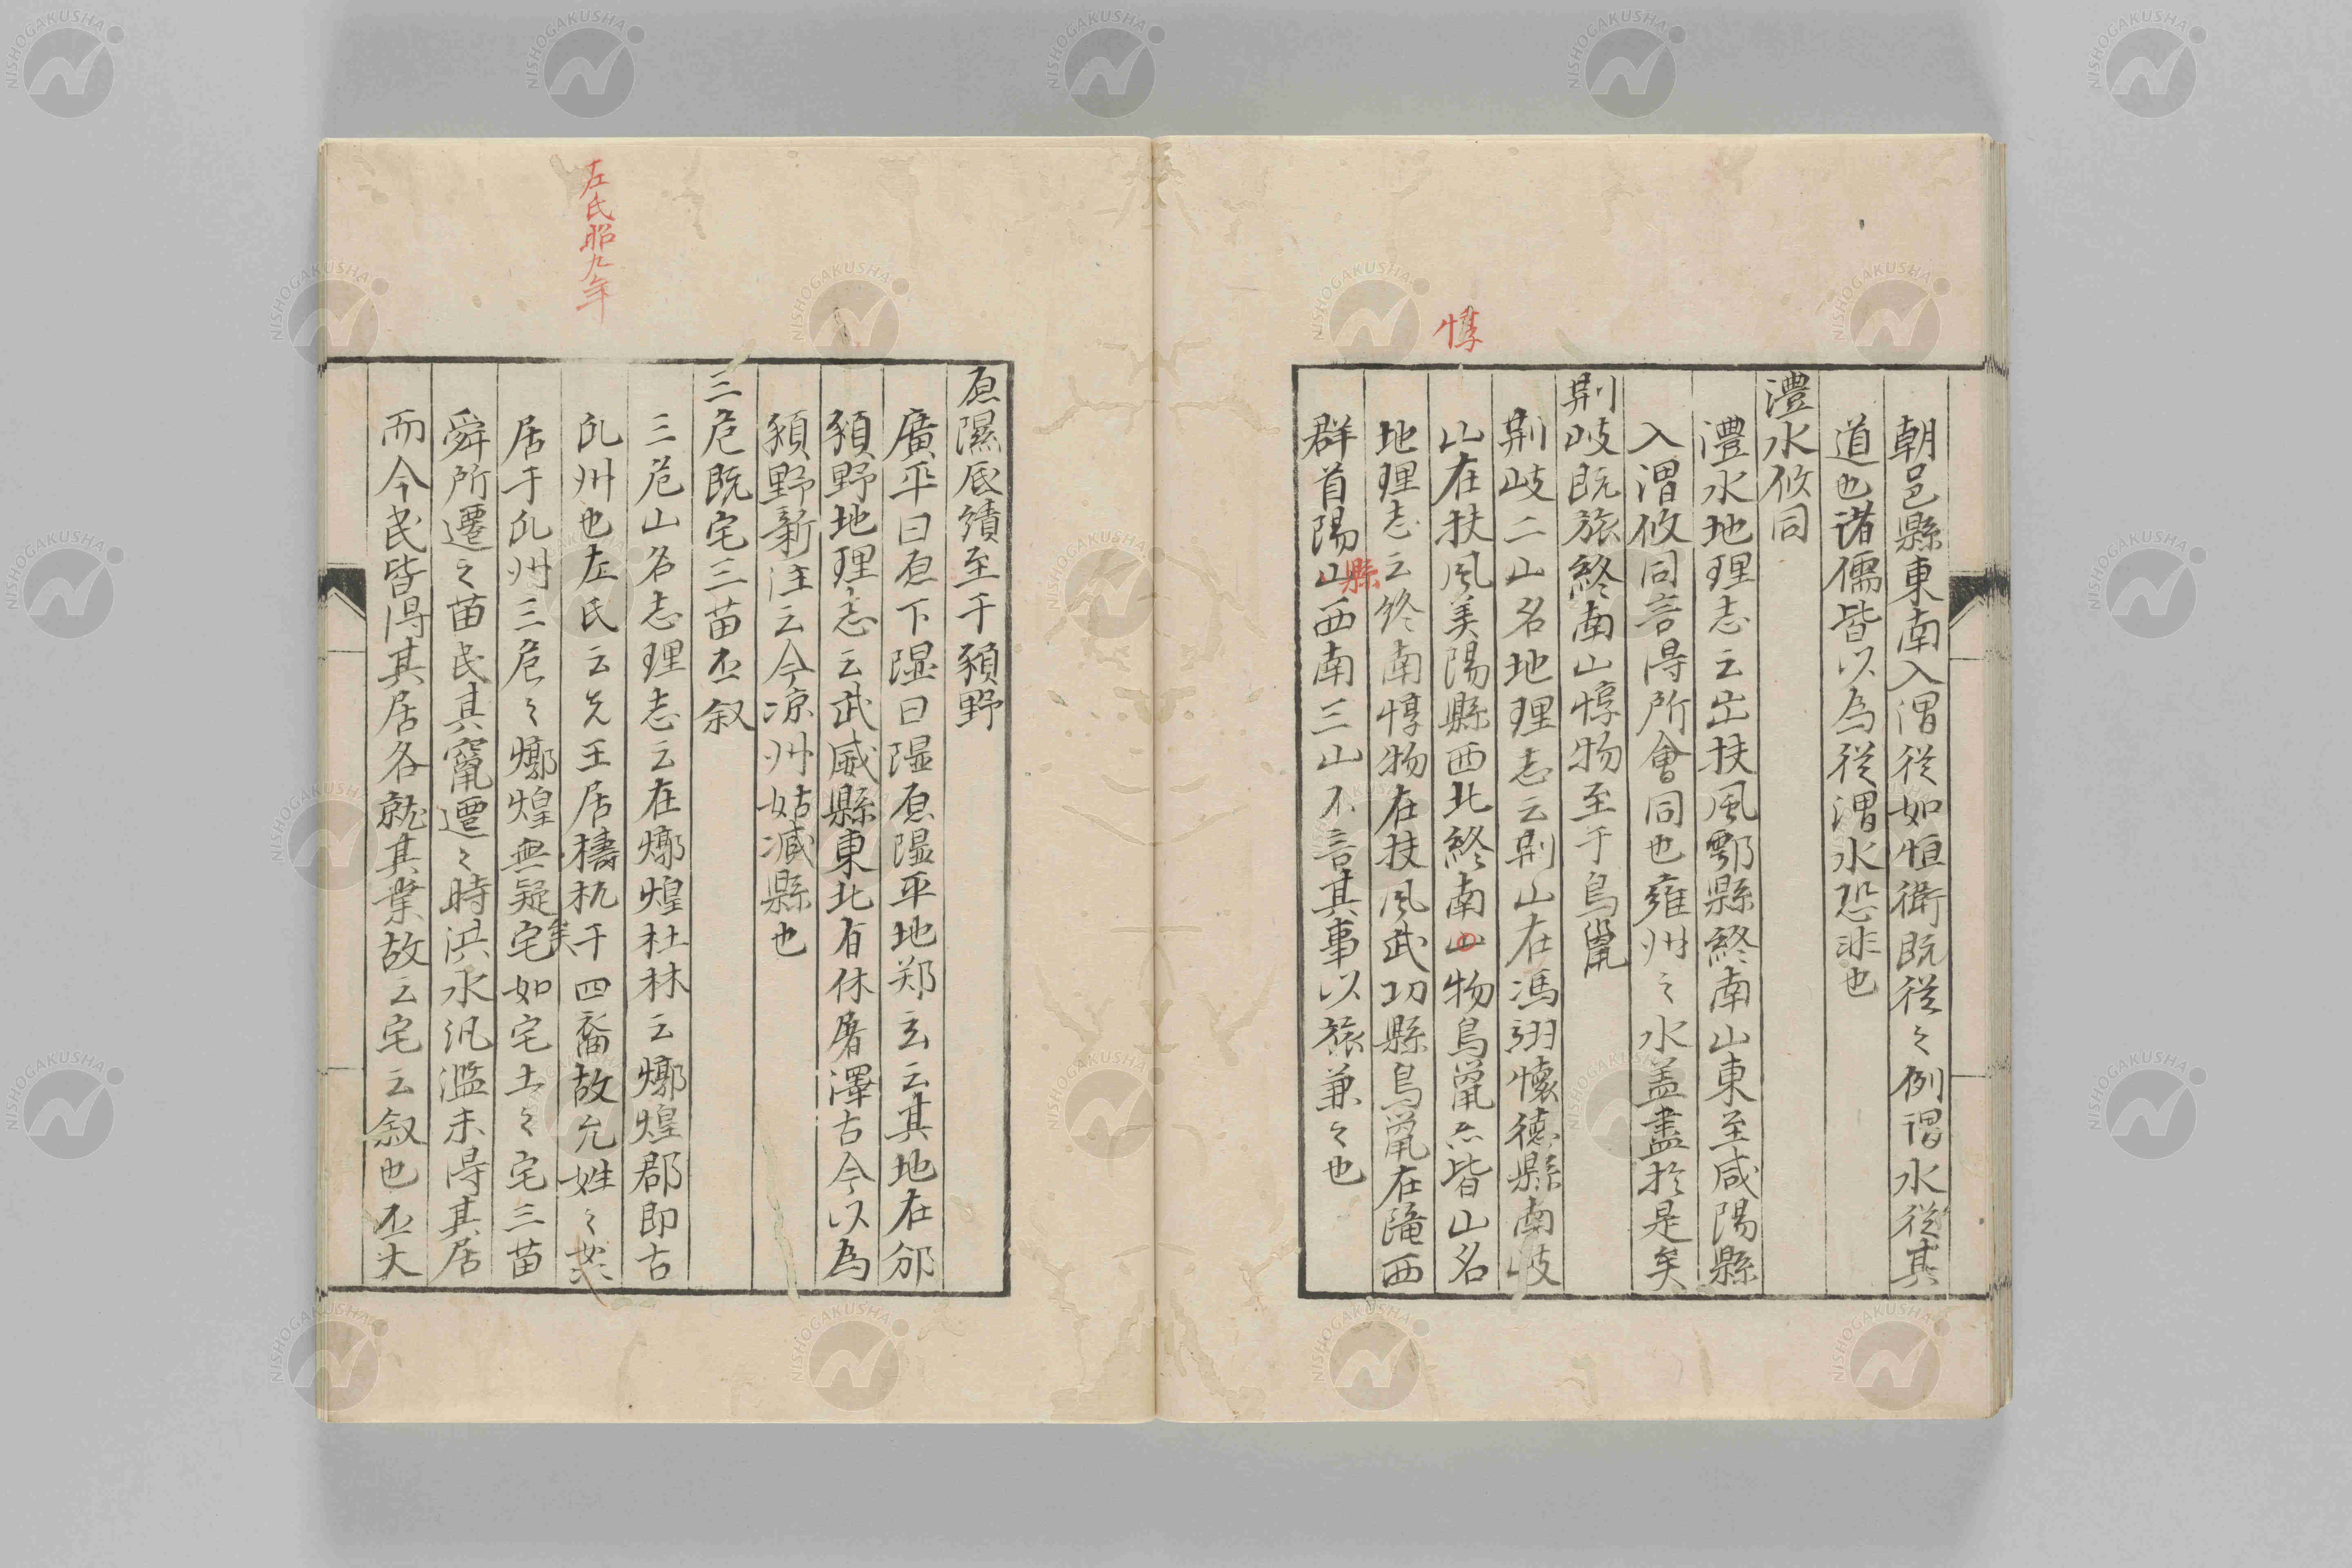 朝邑縣東南入渭從如恒衛既從々例謂水從其
道也諸儒皆以為從渭水恐非也
灃水攸同
灃水地理志云出扶風鄠縣終南山東至咸陽縣
入渭攸同言得所會同也雍州之水盖盡於是矣
荆岐既旅終南山惇物至于鳥鼠
荆岐二山名地理志云荆山在馮翊懷德縣南岐
山在扶風美陽縣西北終南山物鳥鼠亦皆山名
惇
地理志云終南惇物在扶風武功縣鳥鼠在隴西
群首陽山西南三山不言其事以旅兼之也
縣
原濕底績至于豬野
廣平曰原下濕曰隰原隰平地郑玄云其地在邠
豬野地理志云武威縣東北有休屠澤古今以為
豬野新注云今凉州姑減縣也
三危既宅三苗丕叙
三危山名志理志云在燉煌杜林云燉煌郡即古
瓜州也左氏云先王居檮杌于四裔故允姓之姦
左氏昭九年
居于瓜州三危之燉煌無疑矣宅如宅土之宅三苗
舜所遷之苗民其竄遷之時洪水汎濫未得其居
而今民皆得其居各就其業故云宅云叙也丕大
NISHOGAKUSHA